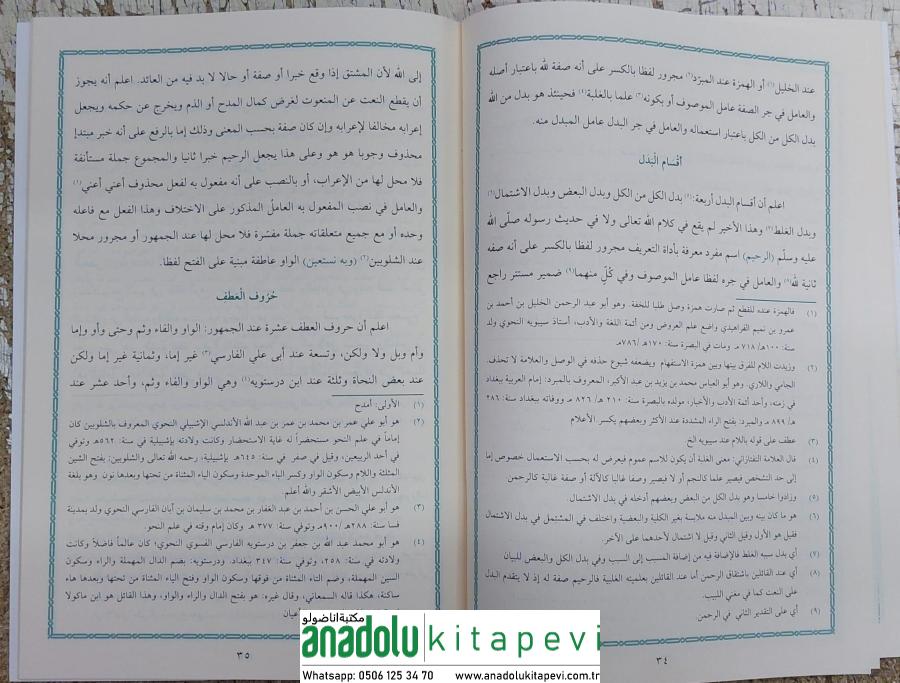 عند الخليل(١) أو الهمزة عند المبرّد(٢) مجرور لفظا بالكسر على أنه صفة لله باعتبار أصله
والعامل في جر الصفة عامل الموصوف أو بكونه(٣) علما بالغلبة(٤) فحينئذ هو بدل من الله
بدل الكل من الكل باعتبار استعماله والعامل في جر البدل عامل المبدل منه.
أقْسَام الْبَدَل
اعلم أن أقسام البدل أربعة:(٥) بدل الكل من الكل وبدل البعض وبدل الاشتمال(٦)
وبدل الغلط(٧) وهذا الأخير لم يقع في كلام الله تعالى ولا في حديث رسوله صلّى الله
عليه وسلّم (الرحيم) اسم مفرد معرفة بأداة التعريف مجرور لفظا بالكسر على أنه صفه
ثانية لله(٨) والعامل في جره لفظا عامل الموصوف وفي كُلّ منهما(٩) ضمير مستتر راجع
(١) فالهمزة عنده للقطع ثم صارت همزة وصل طلبا للخفة. وهو أبو عبد الرحمن الخليل بن أحمد بن
عمرو بن تميم الفراهيدي واضع علم العروض ومن أئمة اللغة والأدب، أستاذ سيبويه النحوي ولد
سنة: ١٠٠هـ/ ٧١٨ مـ ومات في البصرة سنة: ١٧٠هـ /٧٨٦مـ
(٢) وزيدت اللام للفرق بينها وبين همزة الاستفهام ويضعفه شيوع حذفه في الوصل والعلامة لا تحذف.
الجامي واللاري. وهو أبو العباس محمد بن يزيد بن عبد الأكبر، المعروف بالمبرد: إمام العربية ببغداد
في زمنه، وأحد أئمة الأدب والأخبار، مولده بالبصرة سنة: ٢١٠ هـ/ ٨٢٦ مـ ووفاته ببغداد سنة: ٢٨٦
هـ/ ٨٩٩ مـ والمبرد: بفتح الراء المشددة عند الأكثر وبعضهم يكسر. الأعلام
(٣) عطف على قوله باللام عند سيبويه الخ
(٤) قال العلامة التفتازاني: معنى الغلبة أن يكون للاسم عموم فيعرض له بحسب الاستعمال خصوص إما
إلى حد التشخص فيصير علما كالنجم أو لا فيصير وصفا غالبا كالآلة أو صفة غالبة كالرحمن
(٥) وزادوا خامسا وهو بدل الكل من البعض وبعضهم أدخله في بدل الاشتمال.
(٦) هو ما كان بينه وبين المبدل منه ملابسة بغير الكلية والبعضية واختلف في المشتمل في بدل الاشتمال
فقيل هو الأول وقيل الثاني وقيل لا اشتمال لأحدهما على الآخر.
(٧) أي بدل سببه الغلط فالإضافة فيه من إضافة المسبب إلى السبب وفي بدل الكل والبعض للبيان
(٨) أي عند القائلين باشتقاق الرحمن أما عند القائلين بعلميته الغلبية فالرحيم صفة له إذ لا يتقدم البدل
على النعت كما في مغني اللبيب.
(٩) أي على التقدير الثاني في الرحمن.
٣٤
إلى الله لأن المشتق إذا وقع خبرا أو صفة أو حالا لا بد فيه من العائد. اعلم أنه يجوز
أن يقطع النعت عن المنعوت لغرض كمال المدح أو الذم ويخرج عن حكمه ويجعل
إعرابه مخالفا لإعرابه وإن كان صفة بحسب المعنى وذلك إما بالرفع على أنه خبر مبتدإ
محذوف وجوبا هو هو وعلى هذا يجعل الرحيم خبرا ثانيا والمجموع جملة مستأنفة
فلا محل لها من الإعراب، أو بالنصب على أنه مفعول به لفعل محذوف أعني أعني(١)
والعامل في نصب المفعول به العاملُ المذكور على الاختلاف وهذا الفعل مع فاعله
وحده أو مع جميع متعلقاته جملة مفسّرة فلا محل لها عند الجمهور أو مجرور محلا
عند الشلوبين(٢) (وبه نستعين) الواو عاطفة مبنية على الفتح لفظا.
حُرُوف الْعَطْف
اعلم أن حروف العطف عشرة عند الجمهور: الواو والفاء وثم وحتى وأو وإما
وأم وبل ولا ولكن، وتسعة عند أبى علي الفارسي(٣) غير إما، وثمانية غير إما ولكن
عند بعض النحاة وثلثة عند ابن درستويه(٤) وهي الواو والفاء وثم، وأحد عشر عند
(١) الأولى: أمدح
(٢) هو أبو علي عمر بن محمد بن عمر بن عبد الله الأندلسي الإشبيلي النحوي المعروف بالشلوبين كان
إماماً في علم النحو مستحضراً له غاية الاستحضار وكانت ولادته بإشبيلية في سنة: ٥٦٢هـ وتوفي
في أحد الربيعين، وقيل في صفر في سنة: ٦٤٥هـ بإشبيلية، رحمه الله تعالى والشلوبين: بفتح الشين
المثلثة واللام وسكون الواو وكسر الباء الموحدة وسكون الياء المثناة من تحتها وبعدها نون وهو بلغة
الأندلس الأبيض الأشقر والله أعلم.
(٣) هو أبو علي الحسن بن أحمد بن عبد الغفار بن محمد بن سليمان بن أبان الفارسي النحوي ولد بمدينة
فسا سنة: ٢٨٨هـ/٩٠٠مـ وتوفي سنة: ٣٧٧ هـ وكان إمام وقته في علم النحو.
(٤) هو أبو محمد عبد الله بن جعفر بن درستويه الفارسي الفسوي النحوي؛ كان عالماً فاضلاً وكانت
ولادته في سنة: ٢٥٨، وتوفي سنة: ٣٤٧ ببغداد. ودرستويه: بضم الدال المهملة والراء وسكون
السين المهملة، وضم التاء المثناة من فوقها وسكون الواو وفتح الياء المثناة من تحتها وبعدها هاء
ساكنة، هكذا قاله السمعاني، وقال غيره: هو بفتح الدال والراء والواو، وهذا القائل هو ابن ماكولا
عيان
٣٥
مكتبة اناضولو
anadolu kitapevi
Whatsapp: 0506 125 34 70 www.anadolukitapevi.com.tr